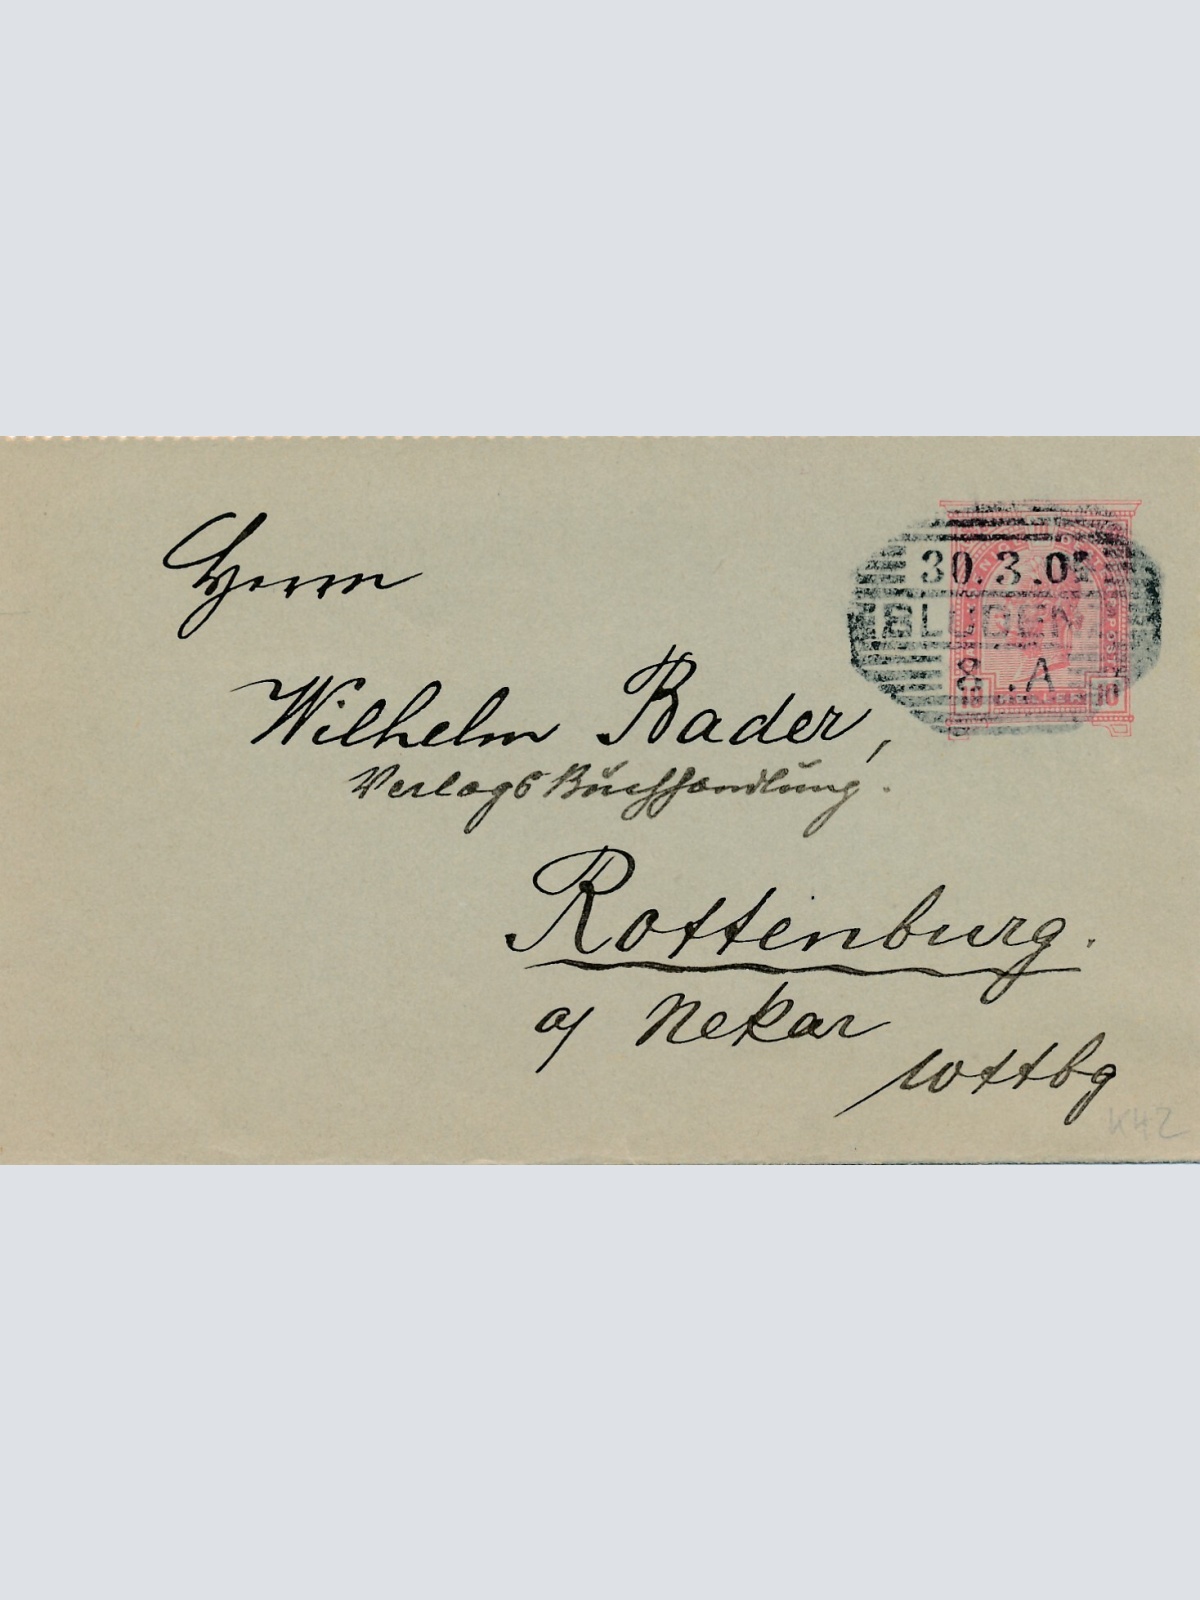 Herrn
30.3.05
BLUDENZ
8.A
10 10
Wilhelm Bader,
Verlagsbuchhandlung.
Rottenburg.
a/ Nekar
Wttbg
K42